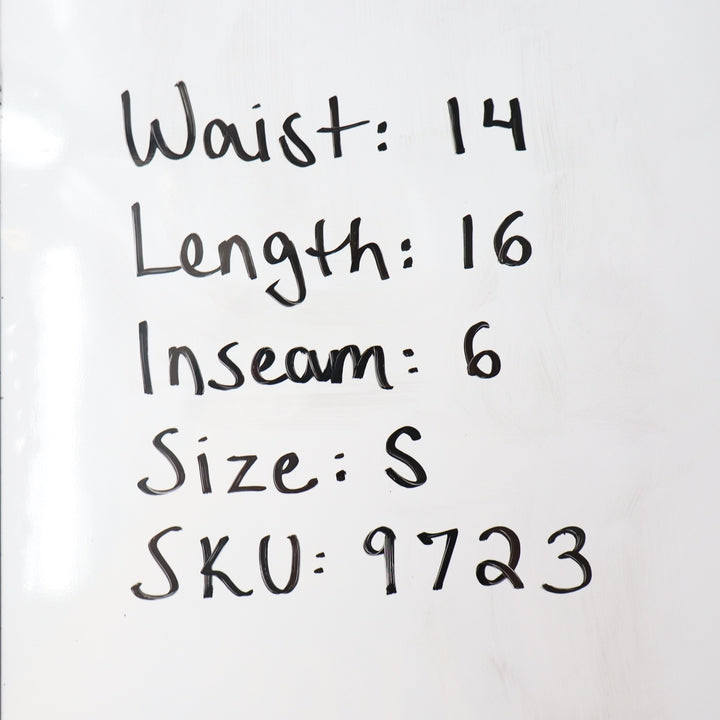 Waist: 14
Length: 16
Inseam: 6
Size: S
SKU: 9723